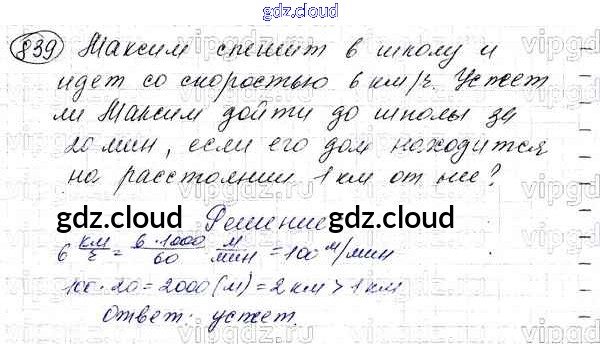 gdz.cloud
839 Максим спешит в школу и
идет со скоростью 6 км/ч. Успеет
ли Максим дойти до школы за
20 мин, если его дом находится
на расстоянии 1 км от нее?
gdz.cloud Решение gdz.cloud
6 км/ч = 6·1000/60 м/мин = 100 м/мин
100·20 = 2000 (м) = 2 км > 1 км
Ответ: успеет.